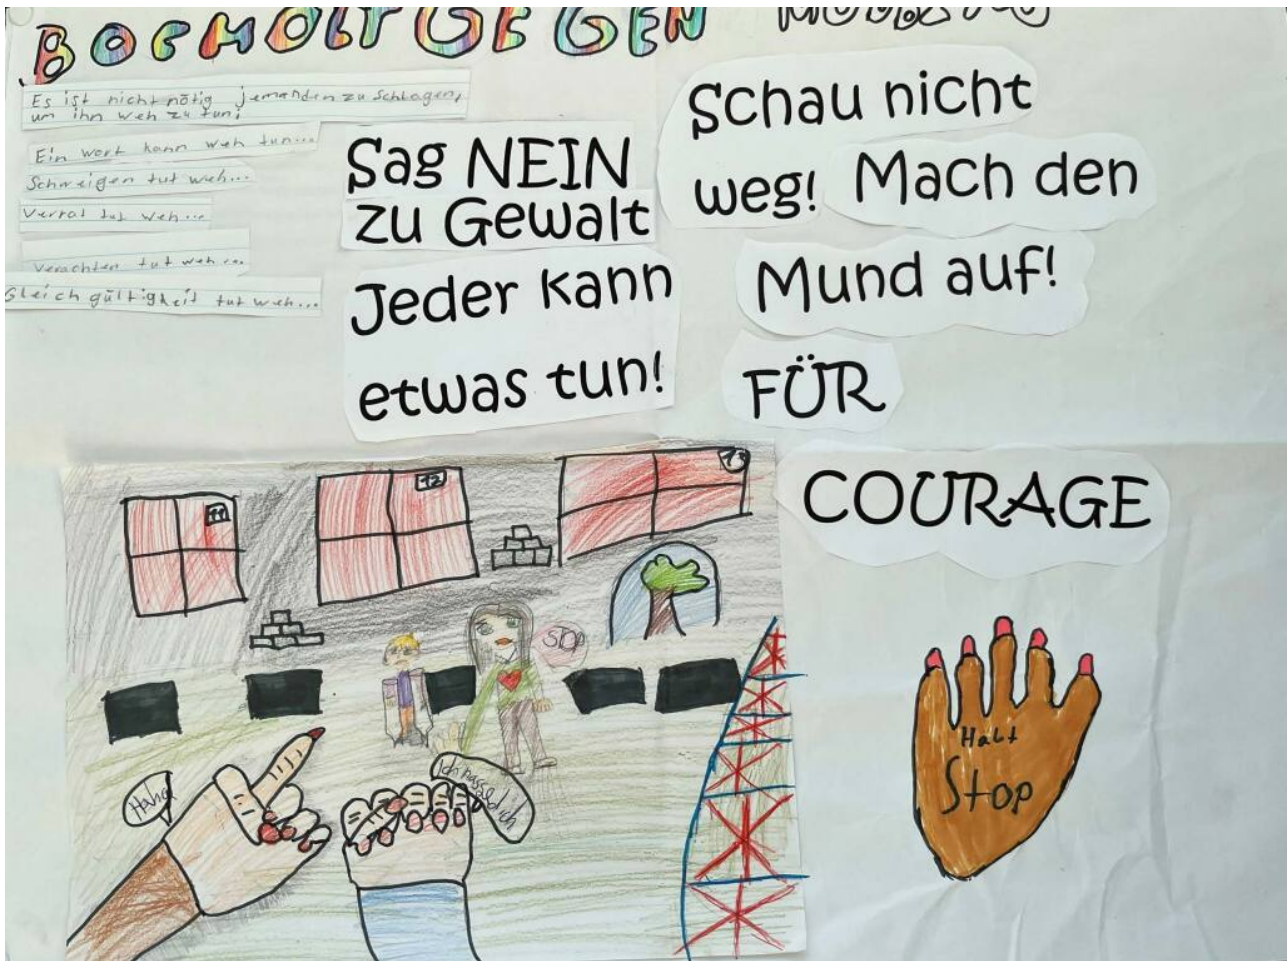 BOCHOLT GEGEN
Es ist nicht nötig jemanden zu schlagen,
um ihn weh zu tun!
Ein wort kann weh tun...
Schweigen tut weh...
Verrat tut weh...
Verachten tut weh...
Gleichgültigkeit tut weh...
Sag NEIN
zu Gewalt
Jeder kann
etwas tun!
Schau nicht
weg! Mach den
Mund auf!
FÜR
COURAGE
11
12
13
STOP
Haha
Halt
Stop